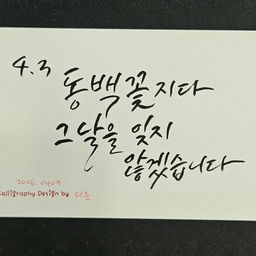 4.3 동백꽃지다
그날을 잊지
않겠습니다
2026. 0403
Calligraphy Design by 다른